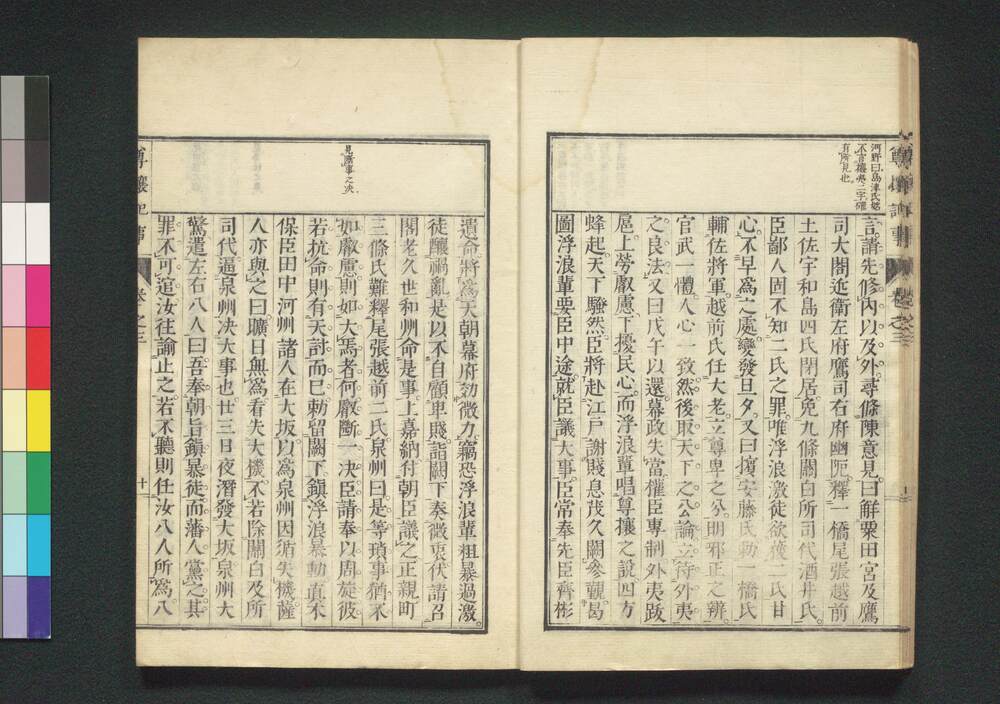 河野曰島津氏始
不言攘夷二字確
有所見也
言請先修内以及外尋條陳意見曰解粟田宮及鷹
司大閤近衛左府鷹司右府幽阨釋一橋尾張越前
土佐宇和島四氏閉居免九條關白所司代酒井氏
臣鄙人固不知二氏之罪唯浮浪激徒欲獲二氏甘
心不早爲之處變發旦夕又曰擯安藤氏勅一橋氏
輔佐將軍越前氏任大老立尊卑之分明邪正之辨
官武一體人心一致然後取天下之公論立待外夷
之良法又曰戊午以還幕政失當權臣專制外夷跋
扈上勞叡慮下擾民心而浮浪輩唱尊攘之説四方
蜂起天下騷然臣將赴江戸謝賤息茂久闕參覲曷
圖浮浪輩要臣中途就臣議大事臣常奉先臣齊彬
遺命將爲天朝幕府効微力竊恐浮浪輩粗暴過激
徒釀禍亂是以不自顧卑賤詣闕下奏微衷伏請召
閣老久世和州命是事上嘉納付朝臣議之正親町
三條氏難釋尾張越前二氏泉州曰是等瑣事猶不
如叡慮則如大焉者何叡斷一決臣請奉以周旋彼
若抗命則有天討而已勅留闕下鎮浮浪暴動眞木
保臣田中河州諸人在大坂以爲泉州因循失機薩
人亦與之曰曠日無爲看失大機不若除關白及所
司代逼泉州決大事也廿三日夜潛發大坂泉州大
驚遣左右八人曰吾奉朝旨鎮暴徒而藩人黨之其
罪不可逭汝往諭止之若不聽則任汝八人所爲八
見應事之决
尊攘紀事
卷之三
十